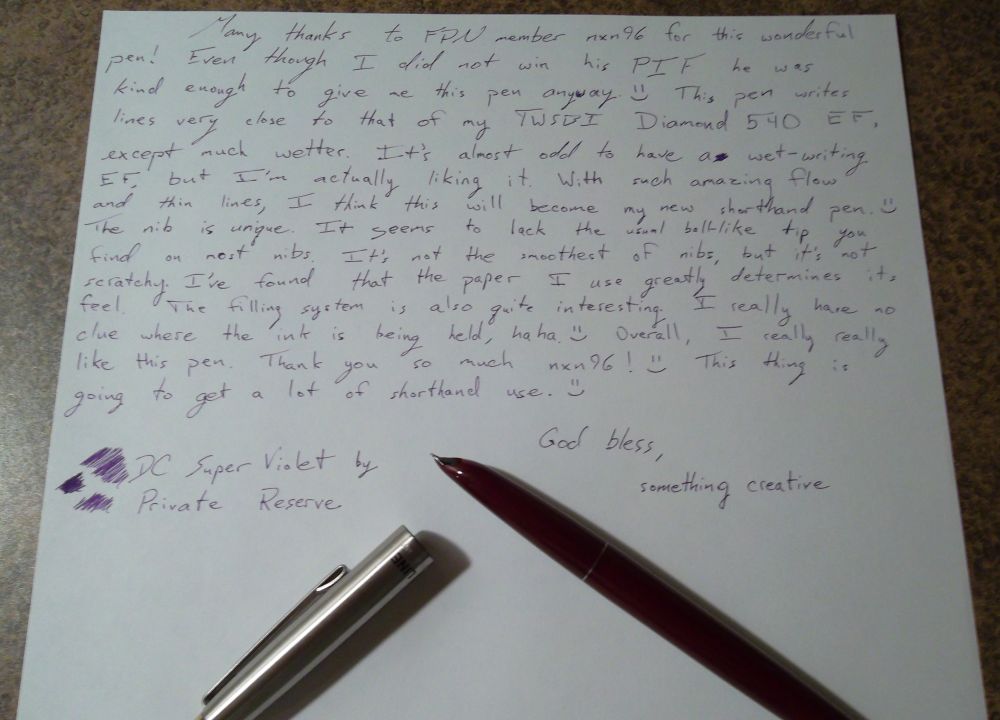 Many thanks to FPN member nxn96 for this wonderful
pen! Even though I did not win his PIF he was
kind enough to give me this pen anyway. :)  This pen writes
lines very close to that of my TWSBI Diamond 540 EF,
except much wetter. It's almost odd to have a wet-writing
EF, but I'm actually liking it. With such amazing flow
and thin lines, I think this will become my new shorthand pen. :)
The nib is unique. It seems to lack the usual ball-like tip you
find on most nibs. It's not the smoothest of nibs, but it's not
scratchy. I've found that the paper I use greatly determines its
feel. The filling system is also quite interesting. I really have no
clue where the ink is being held, haha. :) Overall, I really really
like this pen. Thank you so much nxn96! :) This thing is
going to get a lot of shorthand use. :)
God bless,
something creative
DC Super Violet by
Private Reserve